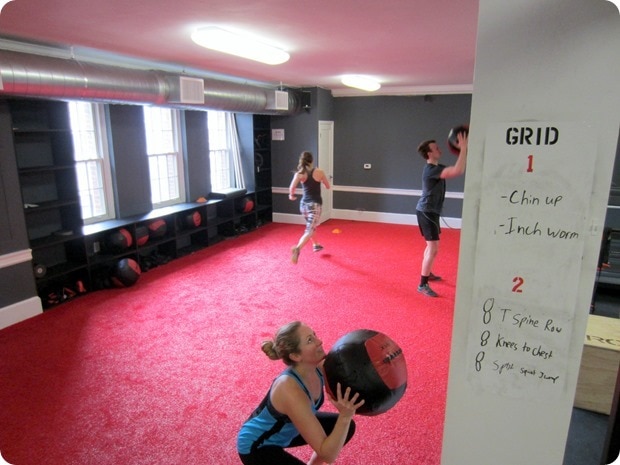 GRID
1
-Chin up
-Inch worm
2
8 T Spine Row
8 Knees to Chest
8 Split squat Jump
RO